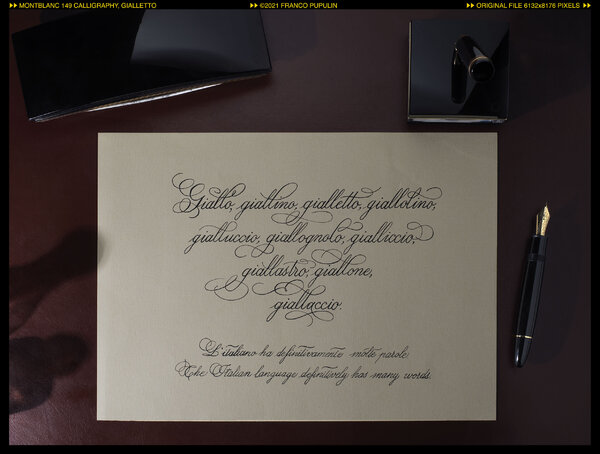 MONTBLANC 149 CALLIGRAPHY, GIALLETTO ©2021 FRANCO PUPULIN ORIGINAL FILE 6132x8176 PIXELS
Giallo, giallino, gialletto, giallolino,
gialluccio, giallognolo, gialliccio,
giallastro, giallone,
giallaccio.
L'italiano ha definitivamente molte parole.
The Italian language definitively has many words.